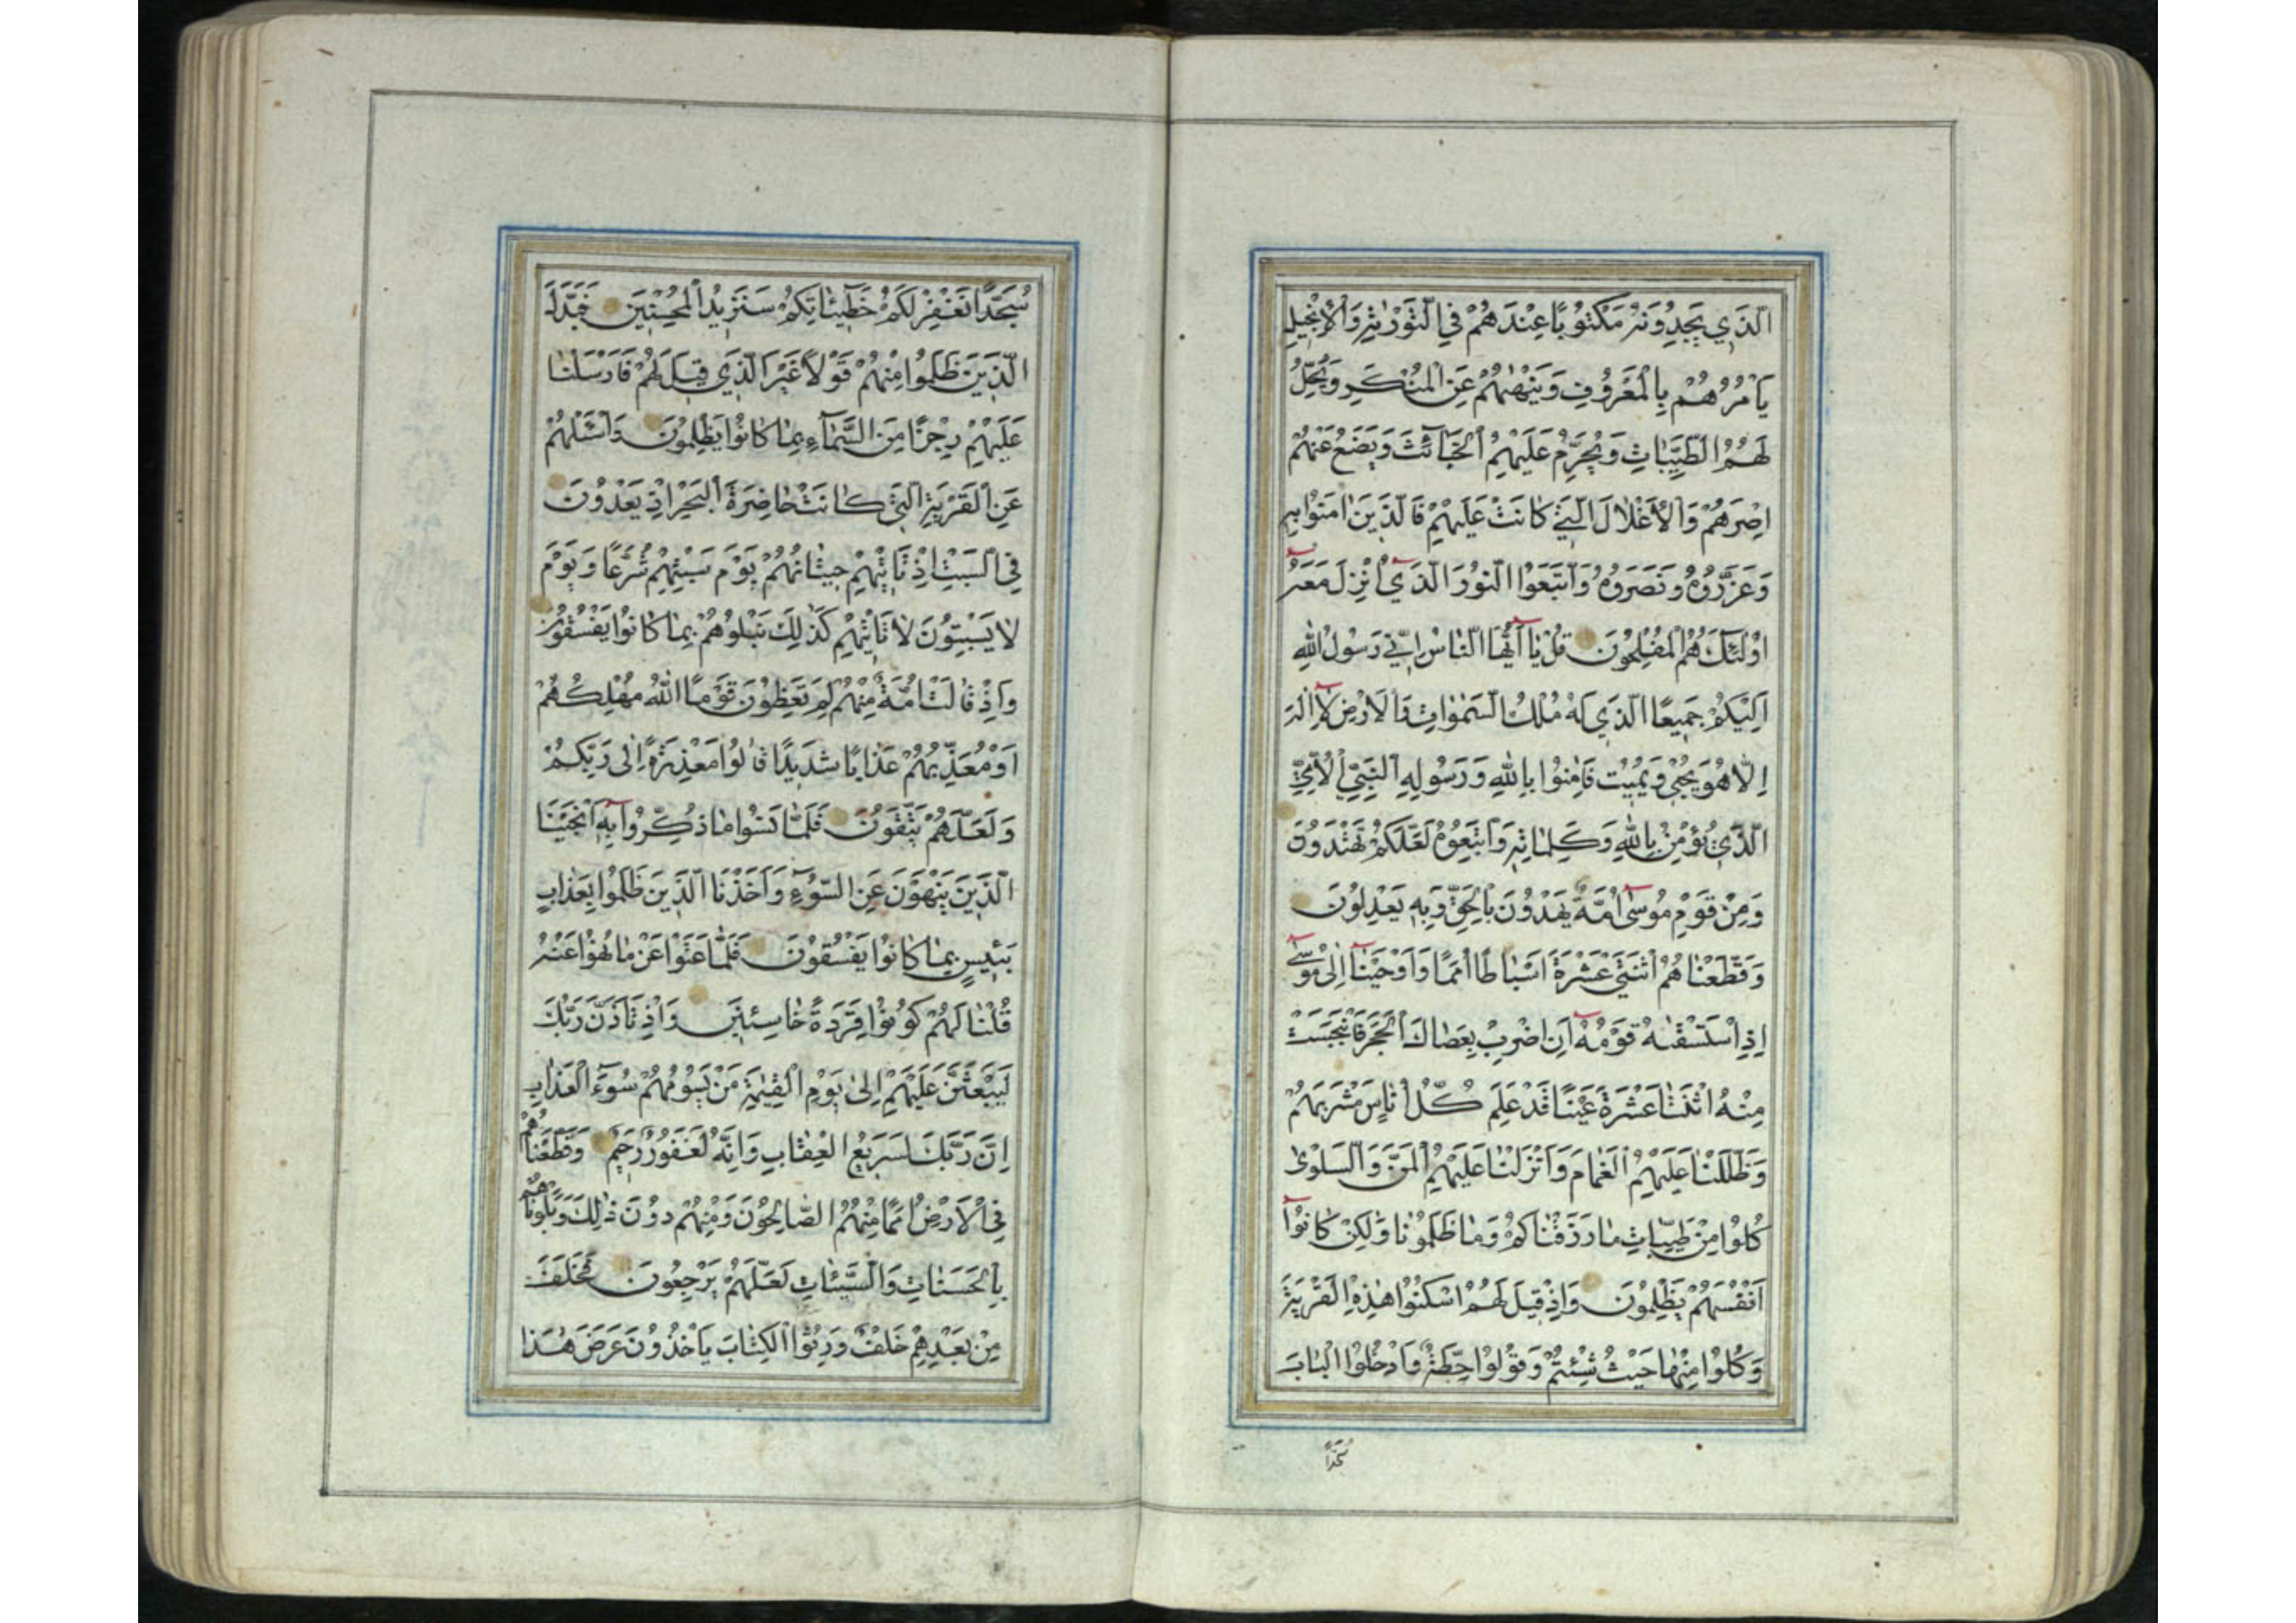 الَّذِي يَجِدُونَهُ مَكْتُوبًا عِنْدَهُمْ فِي التَّوْرٰيةِ وَالْاِنْجِيلِ
يَأْمُرُهُمْ بِالْمَعْرُوفِ وَيَنْهٰيهُمْ عَنِ الْمُنْكَرِ وَيُحِلُّ
لَهُمُ الطَّيِّبَاتِ وَيُحَرِّمُ عَلَيْهِمُ الْخَبَائِثَ وَيَضَعُ عَنْهُمْ
اِصْرَهُمْ وَالْاَغْلَالَ الَّتِي كَانَتْ عَلَيْهِمْ فَالَّذِينَ اٰمَنُوا بِهِ
وَعَزَّرُوهُ وَنَصَرُوهُ وَاتَّبَعُوا النُّورَ الَّذِي اُنْزِلَ مَعَهُ
اُولٰئِكَ هُمُ الْمُفْلِحُونَ قُلْ يَا اَيُّهَا النَّاسُ اِنِّي رَسُولُ اللهِ
اِلَيْكُمْ جَمِيعًا الَّذِي لَهُ مُلْكُ السَّمٰوَاتِ وَالْاَرْضِ لَا اِلٰهَ
اِلَّا هُوَ يُحْيِي وَيُمِيتُ فَاٰمِنُوا بِاللهِ وَرَسُولِهِ النَّبِيِّ الْاُمِّيِّ
الَّذِي يُؤْمِنُ بِاللهِ وَكَلِمَاتِهِ وَاتَّبِعُوهُ لَعَلَّكُمْ تَهْتَدُونَ
وَمِنْ قَوْمِ مُوسٰى اُمَّةٌ يَهْدُونَ بِالْحَقِّ وَبِهِ يَعْدِلُونَ
وَقَطَّعْنَاهُمُ اثْنَتَيْ عَشْرَةَ اَسْبَاطًا اُمَمًا وَاَوْحَيْنَا اِلٰى مُوسٰى
اِذِ اسْتَسْقٰيهُ قَوْمُهُ اَنِ اضْرِبْ بِعَصَاكَ الْحَجَرَ فَانْبَجَسَتْ
مِنْهُ اثْنَتَا عَشْرَةَ عَيْنًا قَدْ عَلِمَ كُلُّ اُنَاسٍ مَشْرَبَهُمْ
وَظَلَّلْنَا عَلَيْهِمُ الْغَمَامَ وَاَنْزَلْنَا عَلَيْهِمُ الْمَنَّ وَالسَّلْوٰى
كُلُوا مِنْ طَيِّبَاتِ مَا رَزَقْنَاكُمْ وَمَا ظَلَمُونَا وَلٰكِنْ كَانُوا
اَنْفُسَهُمْ يَظْلِمُونَ وَاِذْ قِيلَ لَهُمُ اسْكُنُوا هٰذِهِ الْقَرْيَةَ
وَكُلُوا مِنْهَا حَيْثُ شِئْتُمْ وَقُولُوا حِطَّةٌ وَادْخُلُوا الْبَابَ
سُجَّدًا
سُجَّدًا نَغْفِرْ لَكُمْ خَطِيئَاتِكُمْ سَنَزِيدُ الْمُحْسِنِينَ فَبَدَّلَ
الَّذِينَ ظَلَمُوا مِنْهُمْ قَوْلًا غَيْرَ الَّذِي قِيلَ لَهُمْ فَاَرْسَلْنَا
عَلَيْهِمْ رِجْزًا مِنَ السَّمَاءِ بِمَا كَانُوا يَظْلِمُونَ وَاسْئَلْهُمْ
عَنِ الْقَرْيَةِ الَّتِي كَانَتْ حَاضِرَةَ الْبَحْرِ اِذْ يَعْدُونَ
فِي السَّبْتِ اِذْ تَأْتِيهِمْ حِيتَانُهُمْ يَوْمَ سَبْتِهِمْ شُرَّعًا وَيَوْمَ
لَا يَسْبِتُونَ لَا تَأْتِيهِمْ كَذٰلِكَ نَبْلُوهُمْ بِمَا كَانُوا يَفْسُقُونَ
وَاِذْ قَالَتْ اُمَّةٌ مِنْهُمْ لِمَ تَعِظُونَ قَوْمًا اللهُ مُهْلِكُهُمْ
اَوْ مُعَذِّبُهُمْ عَذَابًا شَدِيدًا قَالُوا مَعْذِرَةً اِلٰى رَبِّكُمْ
وَلَعَلَّهُمْ يَتَّقُونَ فَلَمَّا نَسُوا مَا ذُكِّرُوا بِهِ اَنْجَيْنَا
الَّذِينَ يَنْهَوْنَ عَنِ السُّوءِ وَاَخَذْنَا الَّذِينَ ظَلَمُوا بِعَذَابٍ
بَئِيسٍ بِمَا كَانُوا يَفْسُقُونَ فَلَمَّا عَتَوْا عَنْ مَا نُهُوا عَنْهُ
قُلْنَا لَهُمْ كُونُوا قِرَدَةً خَاسِئِينَ وَاِذْ تَاَذَّنَ رَبُّكَ
لَيَبْعَثَنَّ عَلَيْهِمْ اِلٰى يَوْمِ الْقِيٰمَةِ مَنْ يَسُومُهُمْ سُوءَ الْعَذَابِ
اِنَّ رَبَّكَ لَسَرِيعُ الْعِقَابِ وَاِنَّهُ لَغَفُورٌ رَحِيمٌ وَقَطَّعْنَاهُمْ
فِي الْاَرْضِ اُمَمًا مِنْهُمُ الصَّالِحُونَ وَمِنْهُمْ دُونَ ذٰلِكَ وَبَلَوْنَاهُمْ
بِالْحَسَنَاتِ وَالسَّيِّئَاتِ لَعَلَّهُمْ يَرْجِعُونَ فَخَلَفَ
مِنْ بَعْدِهِمْ خَلْفٌ وَرِثُوا الْكِتَابَ يَأْخُذُونَ عَرَضَ هٰذَا